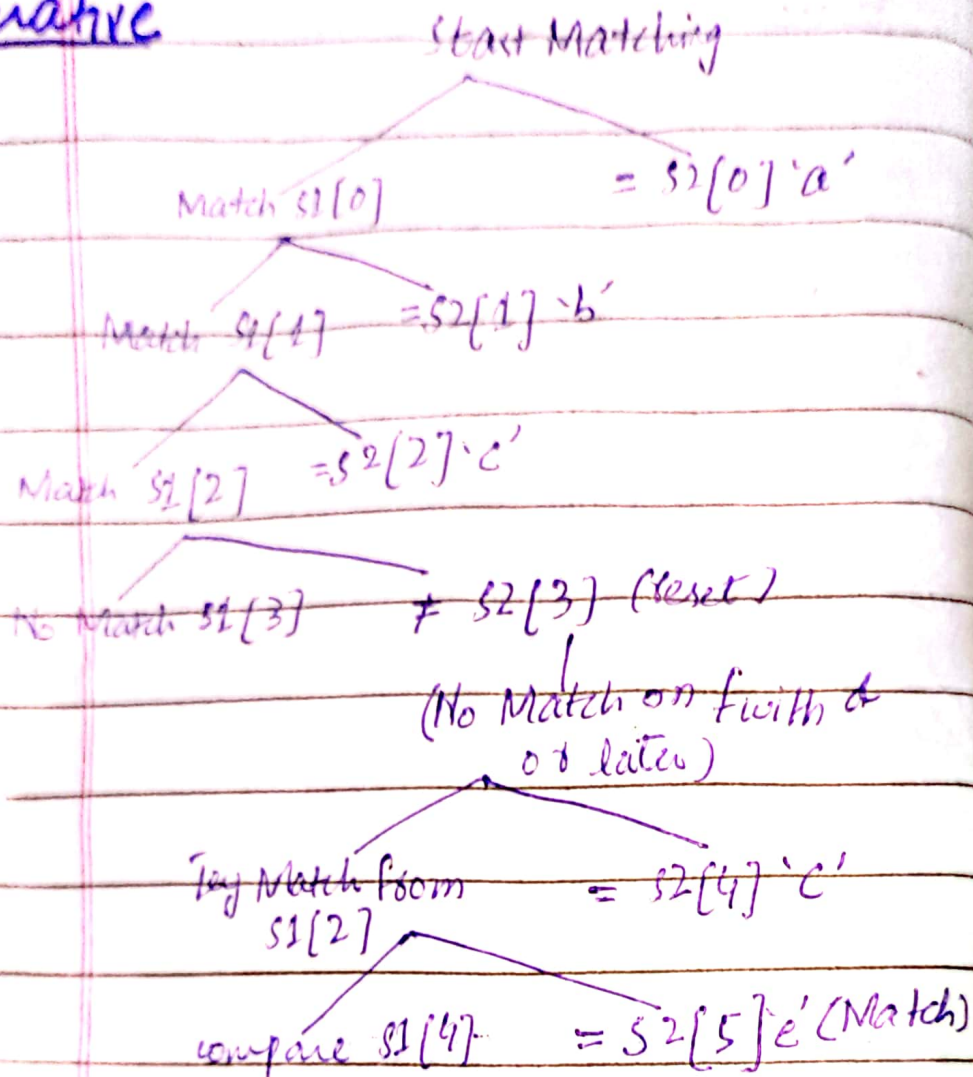 Start Matching
Match S1[0] = S2[0] 'a'
Match S1[1] = S2[1] 'b'
Match S1[2] = S2[2] 'c'
No Match S1[3] ≠ S2[3] (reset)
(No Match on with
or later)
Try Match from = S2[4] 'c'
S1[2]
compare S1[4] = S2[5] 'e' (Match)